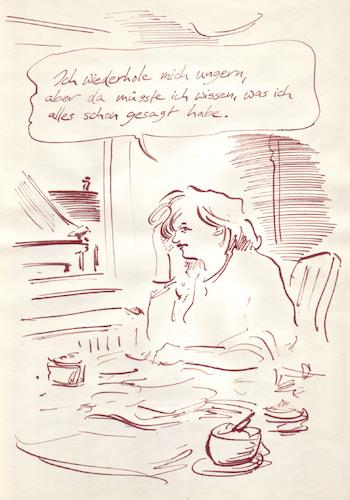 Ich wiederhole mich ungern,
aber da müsste ich wissen, was ich
alles schon gesagt habe.